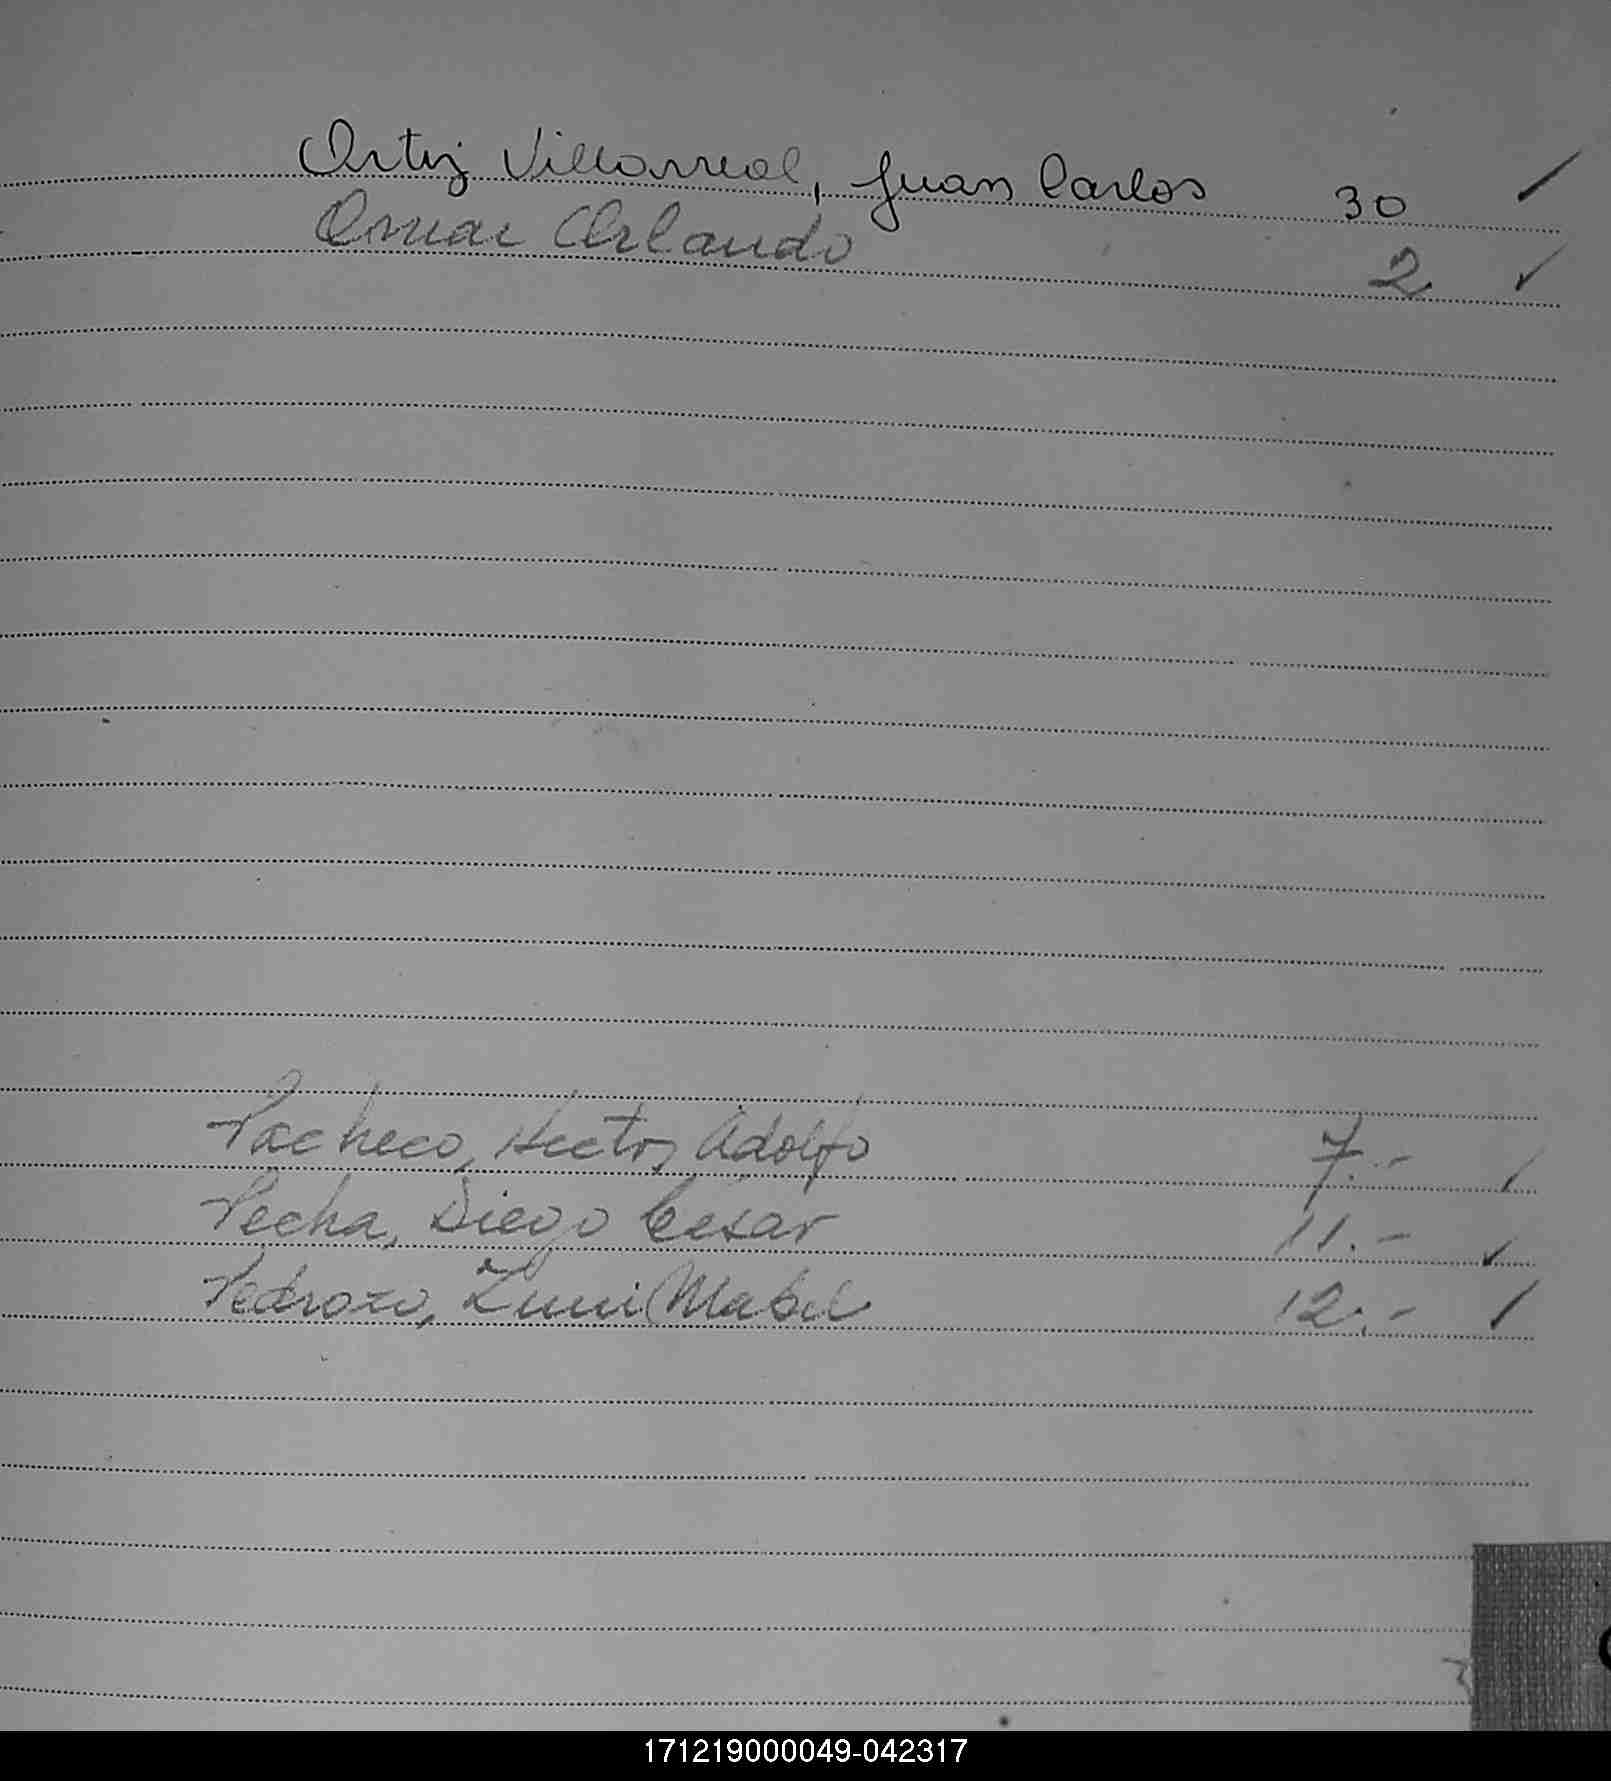 Ortiz Villarreal, Juan Carlos 30 ✓
Omar Orlando 2 ✓
Pacheco, Hector Adolfo 7.- ✓
Pecha, Diego Cesar 11.- ✓
Pedrozo, Zuni Mabel 12.- ✓
171219000049-042317